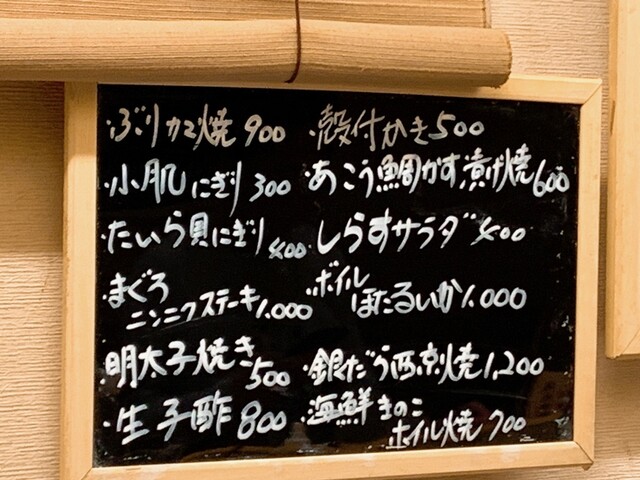 ・ぶりカマ焼 900
・小肌にぎり 300
・たいら貝にぎり 400
・まぐろ
ニンニクステーキ 1.000
・明太子焼き
500
・生子酢 800
・殻付かき 500
・あこう鯛かす漬け焼 600
・しらすサラダ 400
・ボイル
ほたるいか 1.000
・銀だら西京焼 1,200
・海鮮きのこ
ホイル焼 700